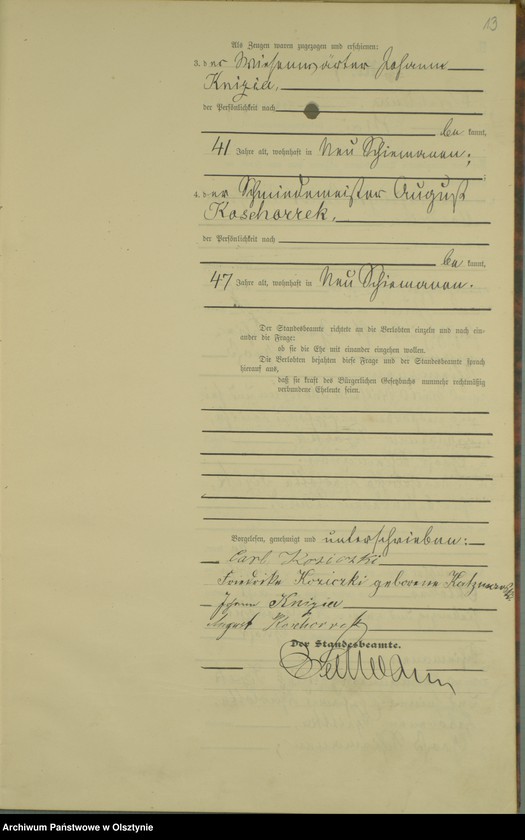 13
Als Zeugen waren zugezogen und erschienen:
3. der Wiesenwärter Johann
Knizia,
der Persönlichkeit nach
be kannt,
41 Jahre alt, wohnhaft in Neu Schiemanen;
4. der Schmiedemeister August
Koschorrek,
der Persönlichkeit nach
be kannt,
47 Jahre alt, wohnhaft in Neu Schiemanen.
Der Standesbeamte richtete an die Verlobten einzeln und nach ein-
ander die Frage:
ob sie die Ehe mit einander eingehen wollen.
Die Verlobten bejahten diese Frage und der Standesbeamte sprach
hierauf aus,
daß sie kraft des Bürgerlichen Gesetzbuchs nunmehr rechtmäßig
verbundene Eheleute seien.
Vorgelesen, genehmigt und unterschrieben:
Carl Kosiczki
Friedrike Koziczki geborene
Johann Knizia
August Koschorrek
Der Standesbeamte.
Archiwum Państwowe w Olsztynie